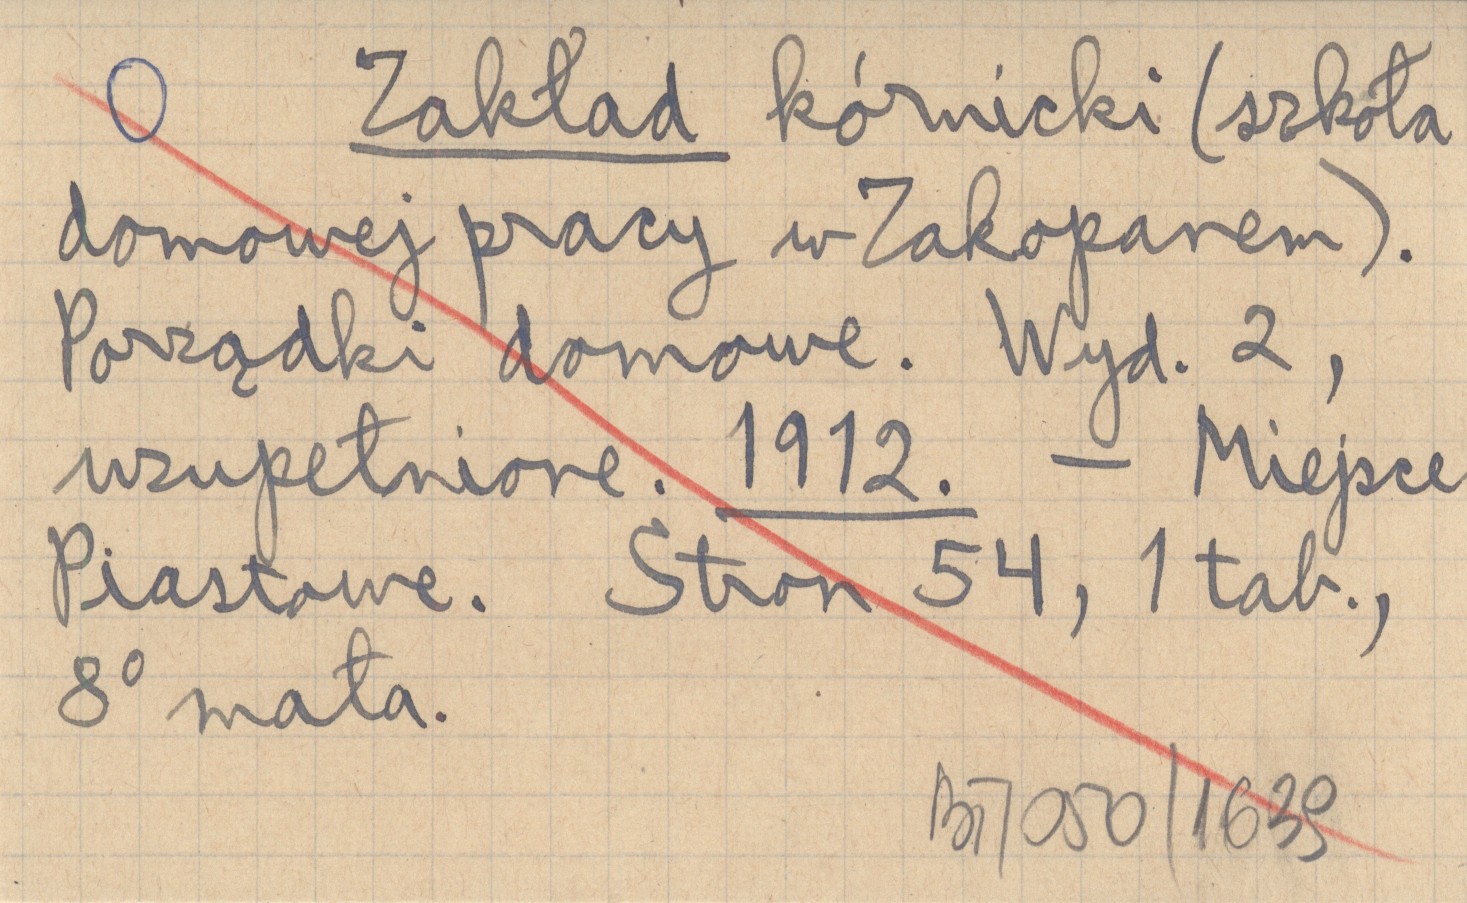 Zakład kórnicki (szkoła
domowej pracy w Zakopanem).
Porządki domowe. Wyd. 2,
uzupełnione. 1912. — Miejsce
Piastowe. Stron 54, 1 tab.,
8° mała.
050/1639